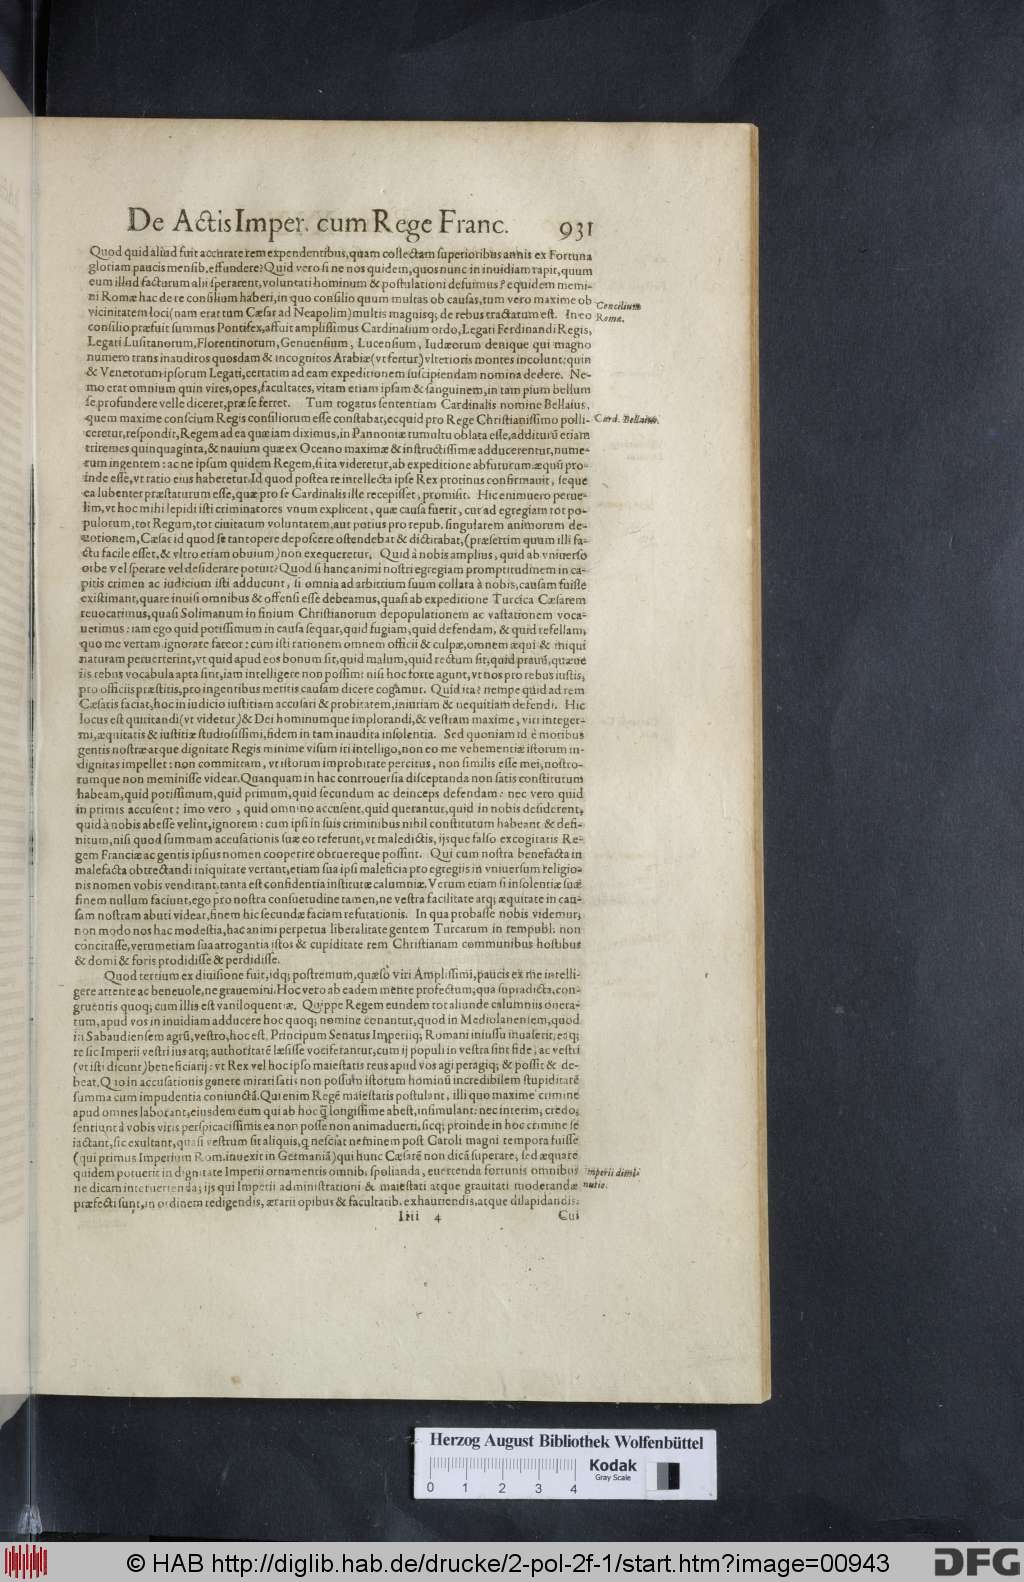 De Actis Imper. cum Rege Franc. 931
Quod quid aliud fuit accurate rem expendentibus, quam collectam superioribus annis ex Fortuna
gloriam paucis mensib. effundere? Quid vero si ne nos quidem, quos nunc in inuidiam rapit, quum
eum illud facturum alii sperarent, voluntati hominum & postulationi defuimus? equidem memi-
ni Romæ hac de re consilium haberi, in quo consilio quum multas ob causas, tum vero maxime ob
vicinitatem loci (nam erat tum Cæsar ad Neapolim) multis magnisq; de rebus tractatum est. In eo
Concilium
Romæ.
consilio præfuit summus Pontifex, affuit amplissimus Cardinalium ordo, Legati Ferdinandi Regis,
Legati Lusitanorum, Florentinorum, Genuensium, Lucensium, Iudæorum denique qui magno
numero trans inauditos quosdam & incognitos Arabiæ (vt fertur) vlterioris montes incolunt: quin
& Venetorum ipsorum Legati, certatim ad eam expeditionem suscipiendam nomina dedere. Ne-
mo erat omnium quin vires, opes, facultates, vitam etiam ipsam & sanguinem, in tam pium bellum
se profundere velle diceret, præ se ferret. Tum rogatus sententiam Cardinalis nomine Bellaius,
quem maxime conscium Regis consiliorum esse constabat, ecquid pro Rege Christianissimo polli-
Card. Bellaius.
ceretur, respondit, Regem ad ea quæ iam diximus, in Pannoniæ tumultu oblata esse, additurū etiam
triremes quinquaginta, & nauium quæ ex Oceano maximæ & instructissimæ adducerentur, nume-
rum ingentem: ac ne ipsum quidem Regem, si ita videretur, ab expeditione abfuturum. æquū pro-
inde esse, vt ratio eius haberetur. Id quod postea re intellecta ipse Rex protinus confirmauit, seque
ea lubenter præstaturum esse, quæ pro se Cardinalis ille recepisset, promisit. Hic enimuero perue-
lim, vt hoc mihi lepidi isti criminatores vnum explicent, quæ causa fuerit, cur ad egregiam tot po-
pulorum, tot Regum, tot ciuitatum voluntatem, aut potius pro repub. singularem animorum de-
uotionem, Cæsar id quod se tantopere deposcere ostendebat & dictitabat, (præsertim quum illi fa-
ctu facile esset, & vltro etiam obuium) non exequeretur. Quid à nobis amplius, quid ab vniuerso
orbe vel sperare vel desiderare potuit? Quod si hanc animi nostri egregiam promptitudinem in ca-
pitis crimen ac iudicium isti adducunt, si omnia ad arbitrium suum collata à nobis, causam fuisse
existimant, quare inuisi omnibus & offensi esse debeamus, quasi ab expeditione Turcica Cæsarem
reuocarimus, quasi Solimanum in finium Christianorum depopulationem ac vastationem voca-
uerimus: iam ego quid potissimum in causa sequar, quid fugiam, quid defendam, & quid refellam,
quo me vertam ignorare fateor: cum isti rationem omnem officii & culpæ, omnem æqui & iniqui
naturam peruerterint, vt quid apud eos bonum sit, quid malum, quid rectum sit, quid prauū, quæue
iis rebus vocabula apta sint, iam intelligere non possim: nisi hoc forte agunt, vt nos pro rebus iustis,
pro officiis præstitis, pro ingentibus meritis causam dicere cogamur. Quid ita? nempe quid ad rem
Cæsaris faciat, hoc in iudicio iustitiam accusari & probitatem, iniuriam & nequitiam defendi. Hic
locus est quiritandi (vt videtur) & Dei hominumque implorandi, & vestram maxime, viri integer-
mi, æquitatis & iustitiæ studiosissimi, fidem in tam inaudita insolentia. Sed quoniam id è moribus
gentis nostræ atque dignitate Regis minime visum iri intelligo, non eo me vehementiæ istorum in-
dignitas impellet: non committam, vt istorum improbitate percitus, non similis esse mei, nostro-
rumque non meminisse videar. Quanquam in hac controuersia disceptanda non satis constitutum
habeam, quid potissimum, quid primum, quid secundum ac deinceps defendam: nec vero quid
in primis accusent: imo vero, quid omnino accusent, quid querantur, quid in nobis desiderent,
quid à nobis abesse velint, ignorem: cum ipsi in suis criminibus nihil constitutum habeant & defi-
nitum, nisi quod summam accusationis suæ eo referunt, vt maledictis, ijsque falso excogitatis Re-
gem Franciæ ac gentis ipsius nomen cooperire obruereque possint. Qui cum nostra benefacta in
malefacta obtrectandi iniquitate vertant, etiam sua ipsi maleficia pro egregiis in vniuersum religio-
nis nomen vobis venditant. tanta est confidentia institutæ calumniæ. Verum etiam si insolentiæ suæ
finem nullum faciunt, ego pro nostra consuetudine tamen, ne vestra facilitate atq; æquitate in cau-
sam nostram abuti videar, finem hic secundæ faciam refutationis. In qua probasse nobis videmur,
non modo nos hac modestia, hac animi perpetua liberalitate gentem Turcarum in rempubl. non
concitasse, verumetiam sua arrogantia istos & cupiditate rem Christianam communibus hostibus
& domi & foris prodidisse & perdidisse.
Quod tertium ex diuisione fuit, idq; postremum, quæso viri Amplissimi, paucis ex me intelli-
gere attente ac beneuole, ne grauemini. Hoc vero ab eadem mente profectum, qua supradicta, con-
gruentis quoq; cum illis est vaniloquentiæ. Quippe Regem eundem tot aliunde calumniis onera-
tum, apud vos in inuidiam adducere hoc quoq; nomine conantur, quod in Mediolanensem, quod
in Sabaudiensem agrū, vestro, hoc est, Principum Senatus Imperiiq; Romani iniussu inuaserit: eaq;
re sic Imperii vestri ius atq; authoritatē læsisse vociferantur, cum ij populi in vestra sint fide, ac vestri
(vt isti dicunt) beneficiarij: vt Rex vel hoc ipso maiestatis reus apud vos agi peragiq; & possit & de-
beat. Quo in accusationis genere mirari satis non possum istorum hominū incredibilem stupiditatē
summa cum impudentia coniunctā. Qui enim Regē maiestatis postulant, illi quo maxime crimine
apud omnes laborant, eiusdem eum qui ab hoc q̃ longissime abest, insimulant: nec interim, credo,
sentiunt à vobis viris perspicacissimis ea non posse non animaduerti, sicq; proinde in hoc crimine se
iactant, sic exultant, quasi vestrum sit aliquis, q nesciat neminem post Caroli magni tempora fuisse
(qui primus Imperium Rom. inuexit in Germaniā) qui hunc Cæsarē non dicā superare, sed æquare
quidem potuerit in dignitate Imperii ornamentis omnib. spolianda, euertenda fortunis omnibus
Imperii dimi-
nutio.
ne dicam interuertenda; ijs qui Imperii administrationi & maiestati atque grauitati moderandæ
præfecti sunt, in ordinem redigendis, ærarii opibus & facultatib. exhauriendis, atque dilapidandis.
Iiii 4 Cui
Herzog August Bibliothek Wolfenbüttel
Kodak
Gray Scale
0 1 2 3 4
© HAB http://diglib.hab.de/drucke/2-pol-2f-1/start.htm?image=00943
DFG